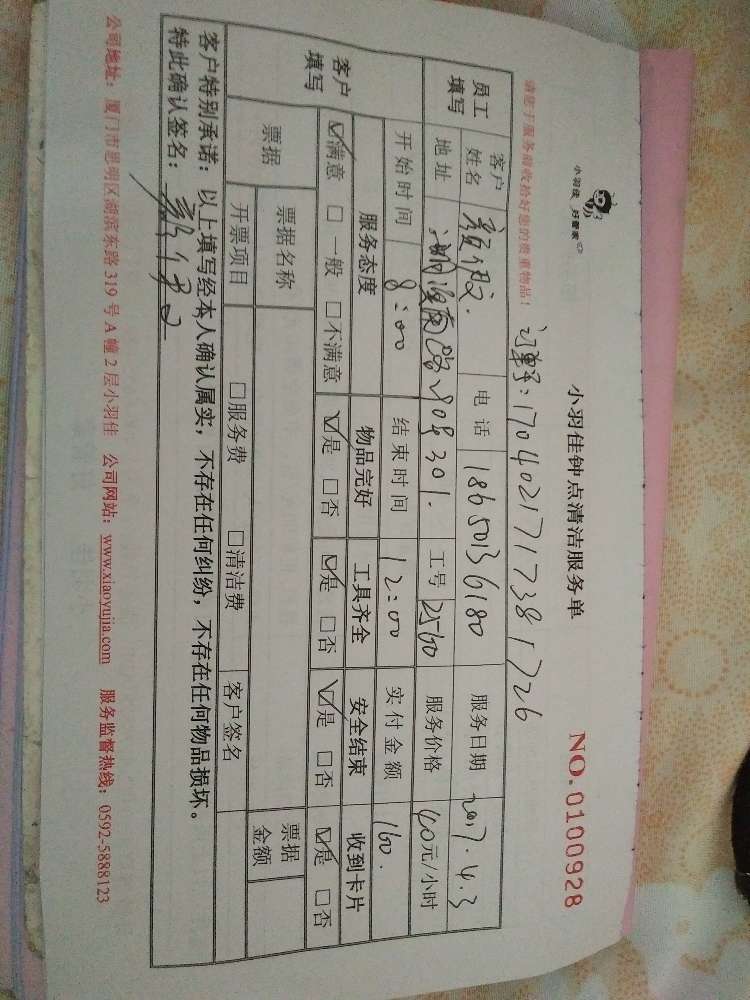 小羽佳 好管家
小羽佳钟点清洁服务单
NO.0100928
请您于服务前收拾好您的贵重物品！
订单号：1704021717381726
员工填写
客户姓名 电话 18650136180 服务日期 2017.4.3
地址 湖滨南路 809 301. 工号 2560 服务价格 40元/小时
开始时间 8:00 结束时间 12:00 实付金额 160.
客户填写
服务态度 物品完好 工具齐全 安全结束 收到卡片
☑满意 □一般 □不满意 ☑是 □否 ☑是 □否 ☑是 □否 ☑是 □否
票据 票据名称 票据金额
开票项目 □服务费 □清洁费 客户签名
客户特别承诺：以上填写经本人确认属实，不存在任何纠纷，不存在任何物品损坏。
特此确认签名：
公司地址：厦门市思明区湖滨东路 319 号 A 幢 2 层小羽佳 公司网站：www.xiaoyujia.com 服务监督热线：0592-5888123